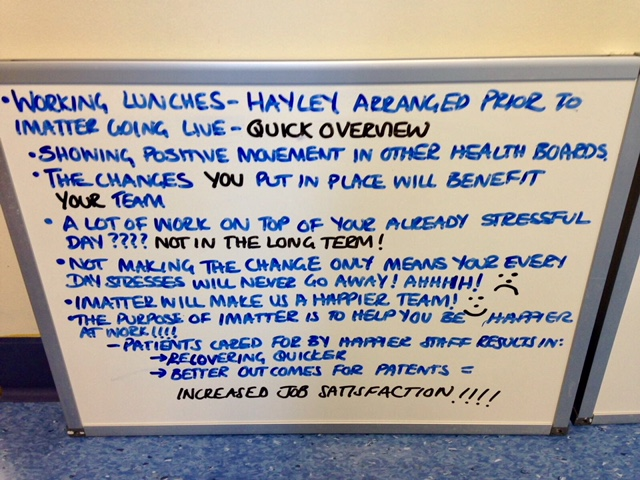 • WORKING LUNCHES - HAYLEY ARRANGED PRIOR TO
IMATTER GOING LIVE - QUICK OVERVIEW
• SHOWING POSITIVE MOVEMENT IN OTHER HEALTH BOARDS.
• THE CHANGES YOU PUT IN PLACE WILL BENEFIT
YOUR TEAM
• A LOT OF WORK ON TOP OF YOUR ALREADY STRESSFUL
DAY ???? NOT IN THE LONG TERM!
• NOT MAKING THE CHANGE ONLY MEANS YOUR EVERY
DAY STRESSES WILL NEVER GO AWAY! AHHHH!
• IMATTER WILL MAKE US A HAPPIER TEAM!
• THE PURPOSE OF IMATTER IS TO HELP YOU BE HAPPIER
AT WORK!!!!
- PATIENTS CARED FOR BY HAPPIER STAFF RESULTS IN:
→ RECOVERING QUICKER
→ BETTER OUTCOMES FOR PATENTS =
INCREASED JOB SATISFACTION!!!!